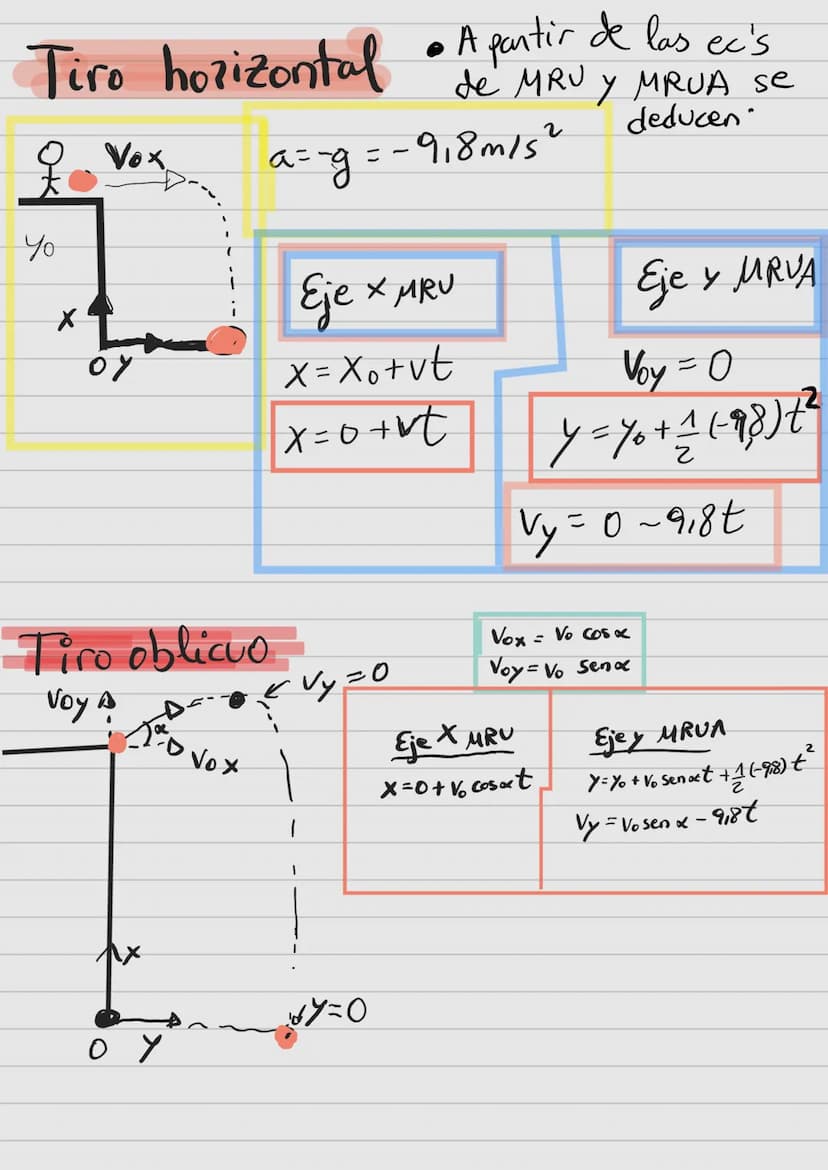 Tiro horizontal
• A partir de las ec's
de MRU y MRUA se
deducen:
Vox
a=-g = -9,8m/s²
Yo
X
O Y
Eje x MRU
X = Xo+vt
X = 0 +vt
Eje y MRUA
Voy = 0
y = yo + 1/2 (-9,8)t²
Vy = 0 - 9,8t
Tiro oblicuo
Vox = Vo cosα
Voy = Vo senα
Voy
α
Vox
Vy = 0
Eje X MRU
X=0+ Vo cosα t
Eje y MRUA
y=yo + Vo senα t + 1/2 (-9,8) t²
Vy = Vo sen α - 9,8t
X
O Y
y=0